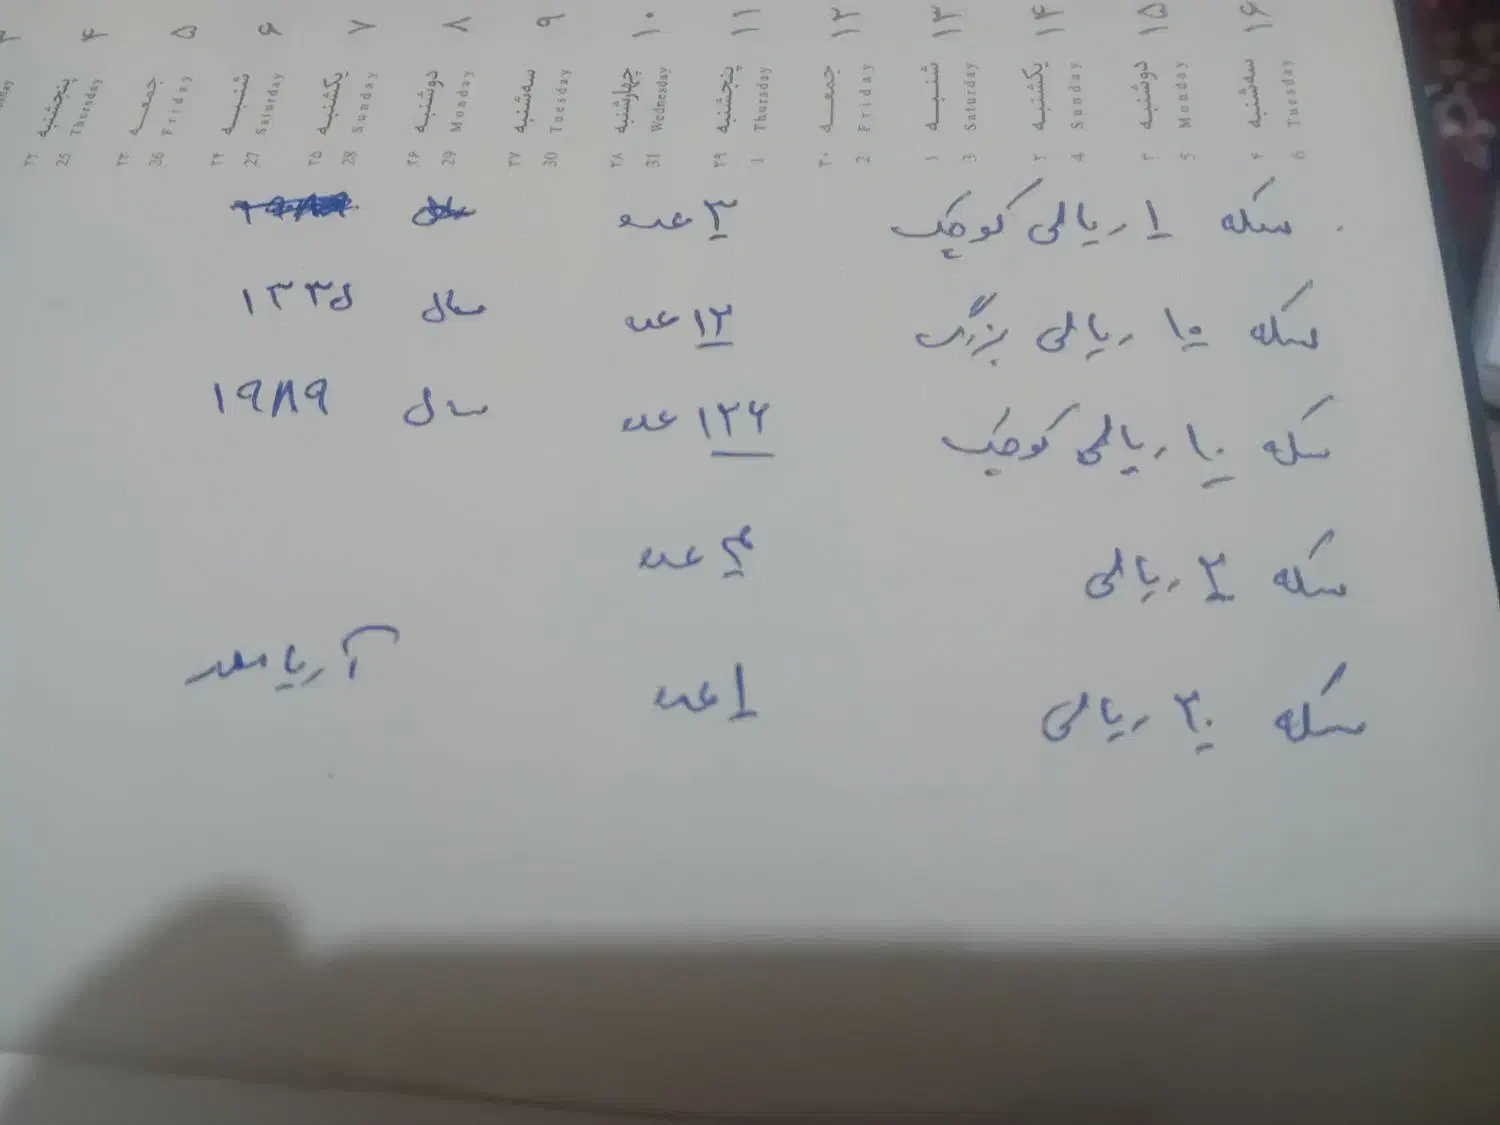 ۴ ۵ ۶ ۷ ۸ ۹ ۱۰ ۱۱ ۱۲ ۱۳ ۱۴ ۱۵ ۱۶
پنجشنبه جمعه شنبه یکشنبه دوشنبه سه‌شنبه چهارشنبه پنجشنبه جمعه شنبه یکشنبه دوشنبه سه‌شنبه
Thursday Friday Saturday Sunday Monday Tuesday Wednesday Thursday Friday Saturday Sunday Monday Tuesday
۲۳ ۲۴ ۲۵ ۲۶ ۲۷ ۲۸ ۲۹ ۳۰ ۱ ۲ ۳ ۴
25 26 27 28 29 30 31 1 2 3 4 5 6
سکه ۱ ریالی کوچک ۳ عدد
سکه ۱۰ ریالی بزرگ ۱۲ عدد سال ۱۳۳۵
سکه ۱۰ ریالی کوچک ۱۲۶ عدد سال ۱۹۸۹
سکه ۲ ریالی ۴ عدد
سکه ۲۰ ریالی ۱ عدد آریامهر